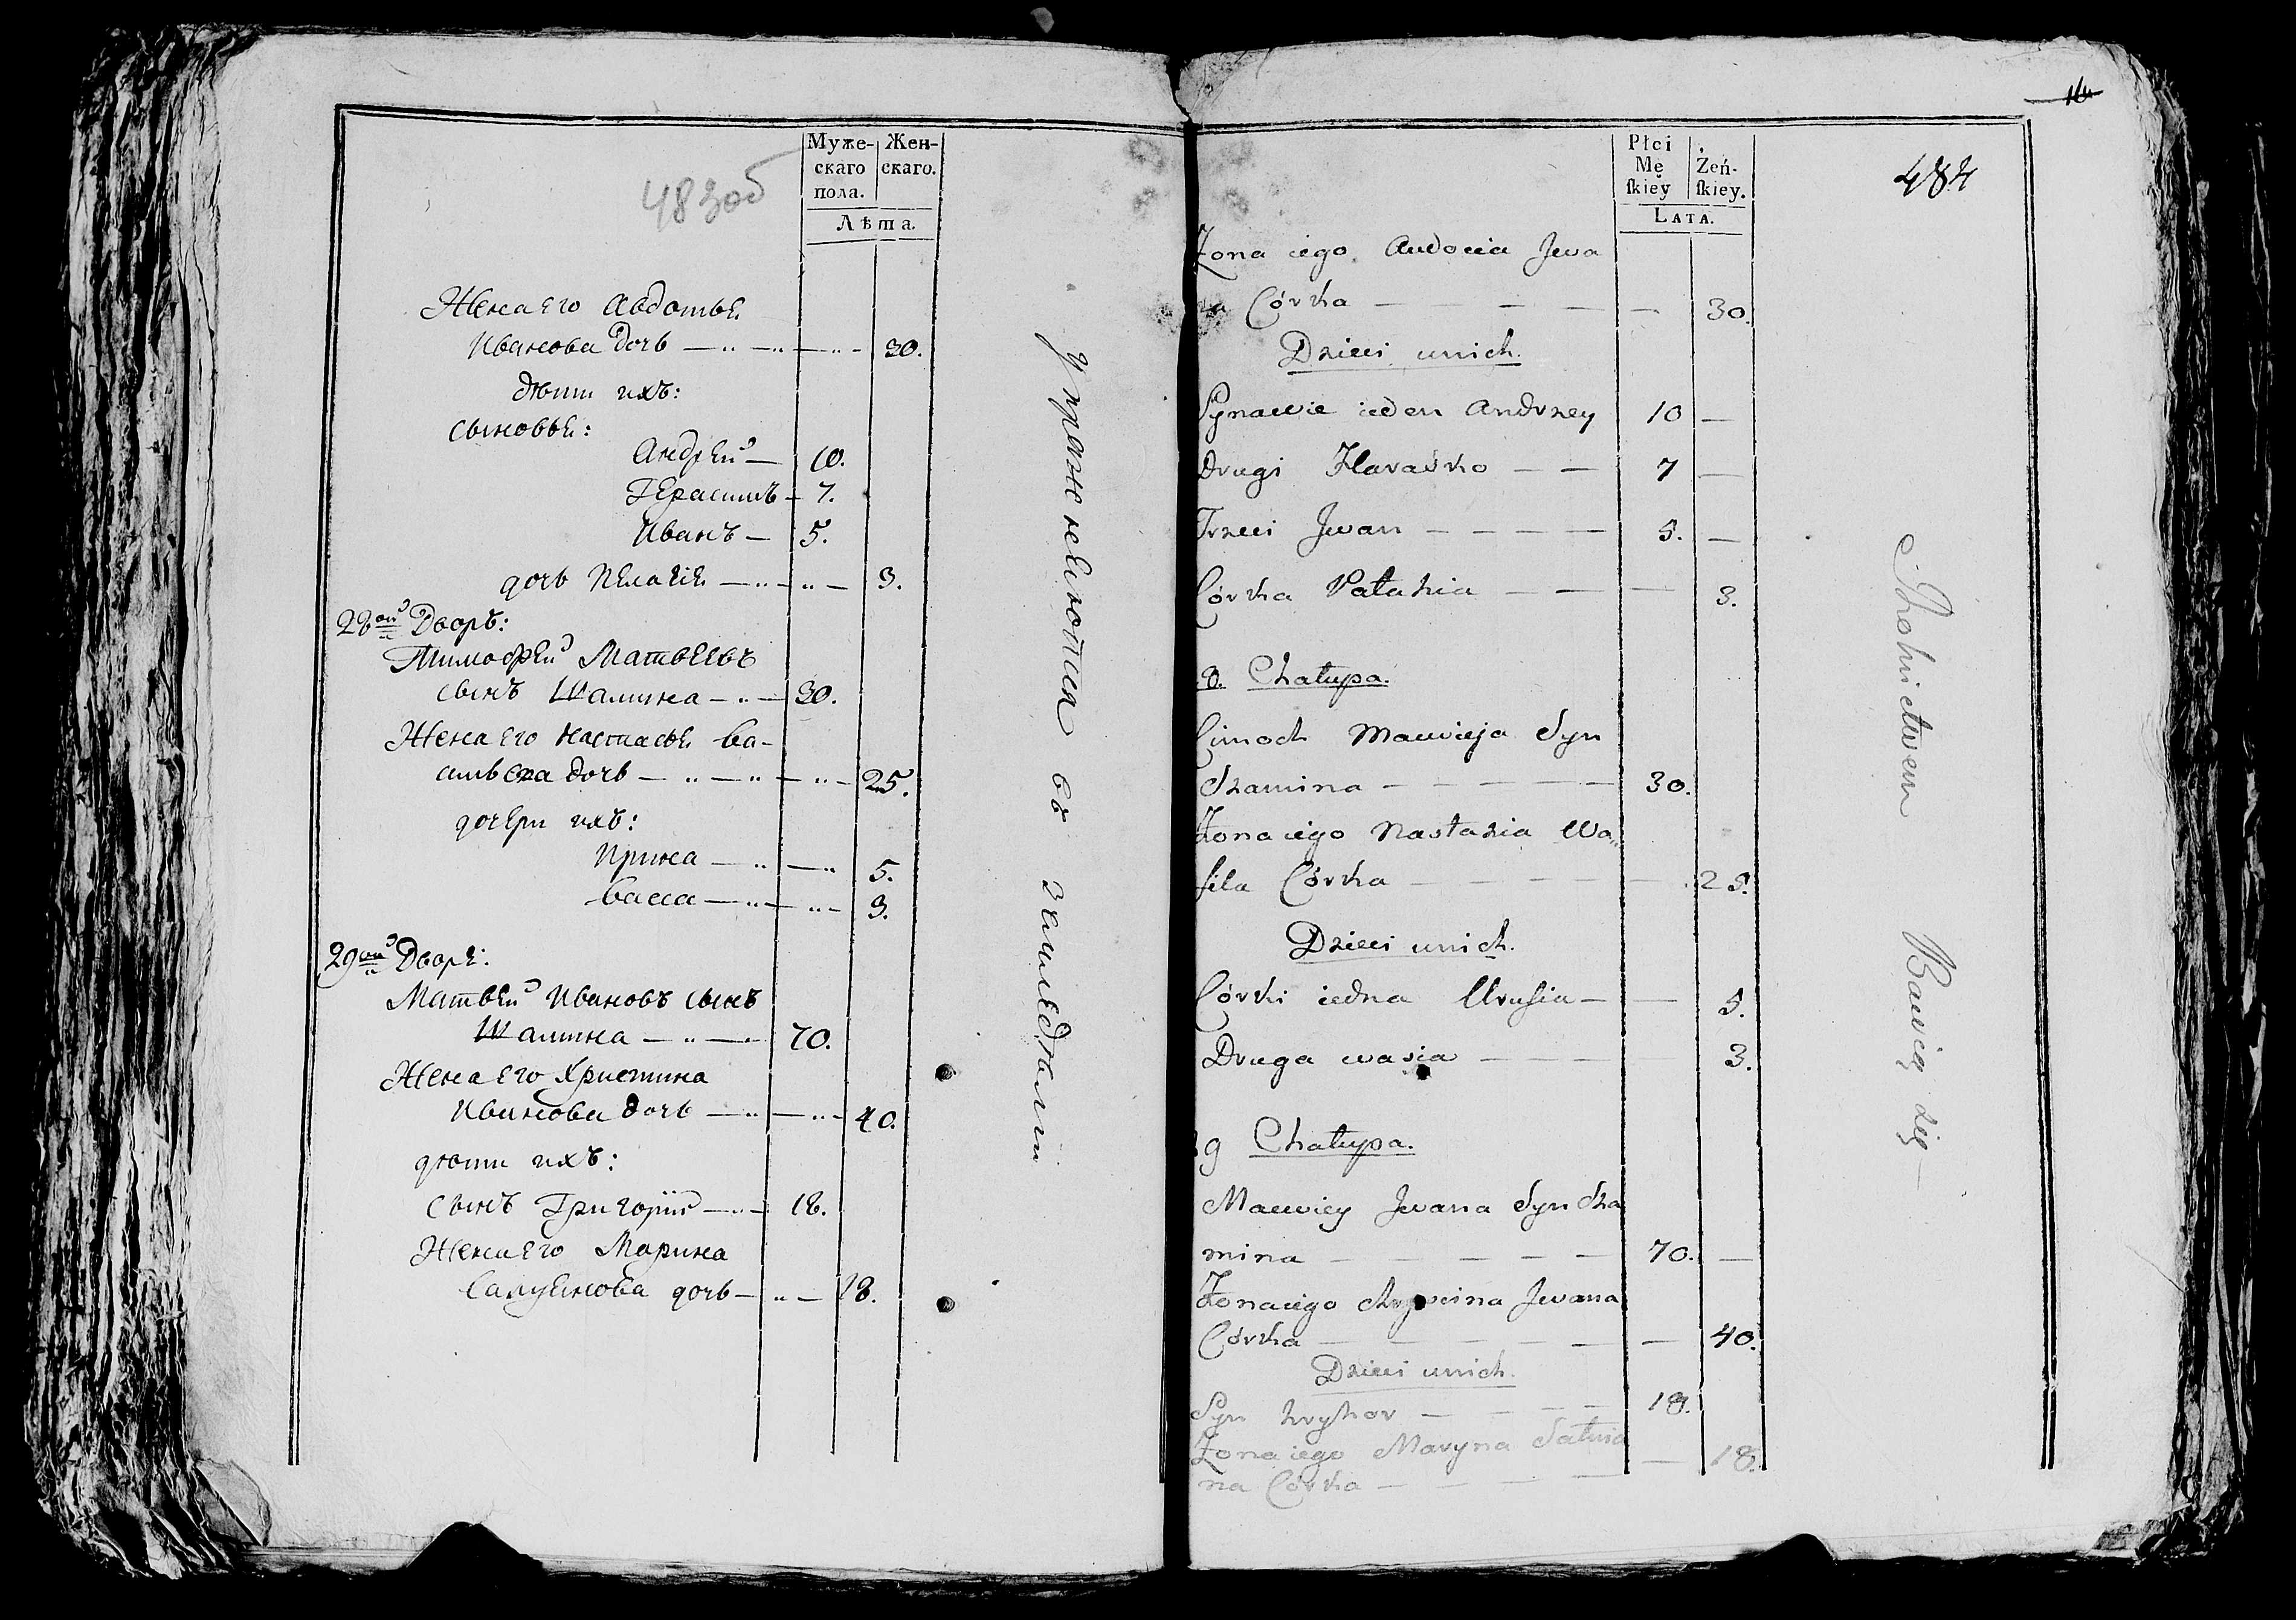 483об
Муже- Жен-
скаго скаго.
пола.
Лѣта.
Жена его Авдотья
Иванова дочь — 30.
дѣти ихъ:
сыновья:
Андрей — 10.
Герасимъ — 7.
Иванъ — 5.
дочь Пелагея — 3.
28ой Дворъ:
Тимофей Матвеевъ
сынъ Шамина — 30.
Жена его Настасья Ва-
сильева дочь — 25.
дочери ихъ:
Ирина — 5.
Васса — 3.
29ой Дворъ:
Матвей Ивановъ сынъ
Шамина — 70.
Жена его Христина
Иванова дочь — 40.
дѣти ихъ:
сынъ Григорій — 18.
Жена его Марина
дочь — 18.
Упражняются въ земледѣлии
16
484
Płci
Mę Żeń-
skiey skiey.
LATA.
Zona iego Audocia Jwa
na Córka — 30.
Dzieci unich.
Synawie ieden Andrzey 10 —
Drugi Haraśko — 7 —
Trzeci Jwan — 5. —
Córka Pałahia — 3.
8. Chałupa.
Cimoch Macwieja Syn
Szamina — 30.
Zona iego Nastazia Wa„
sila Córka — 25.
Dzieci unich.
Córki iedna Urusia — 5.
Druga wasia — 3.
29 Chałupa.
Macwiey Jwana Syn Sza
mina — 70. —
Zona iego Jwana
Córka — 40.
Dzieci unich.
Syn hryhor — 18.
Zona iego Maryna Sałuia
na Córka — 18.
Rolnictwem Bawią się —